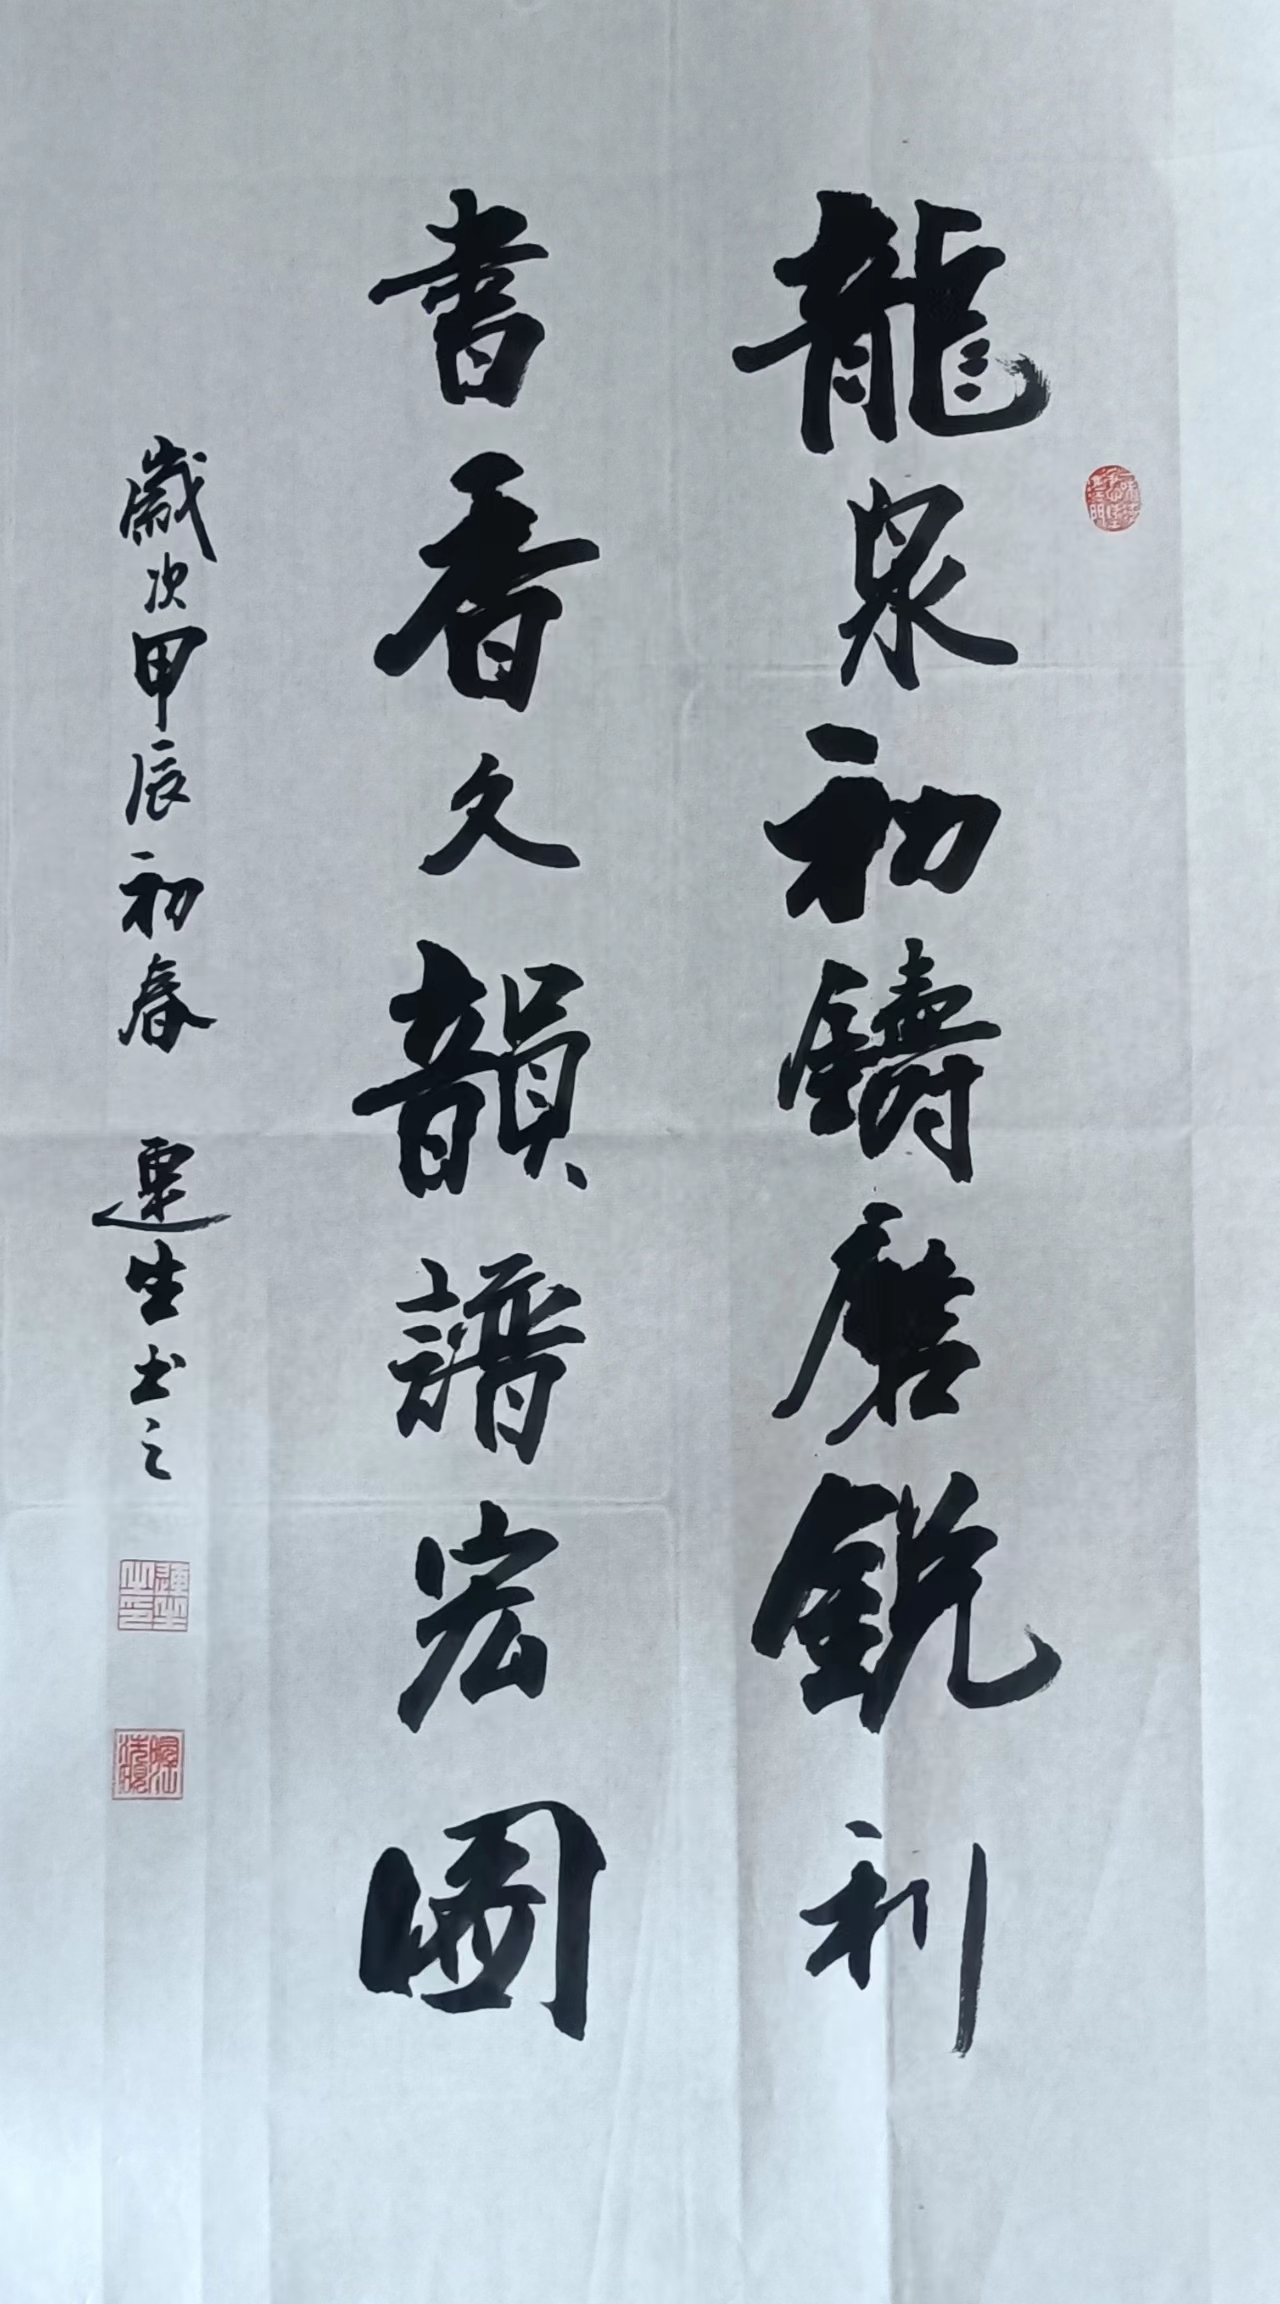 龍泉初鑄磨鋭利
書香久韻譜宏圖
歲次甲辰初春 運生书之